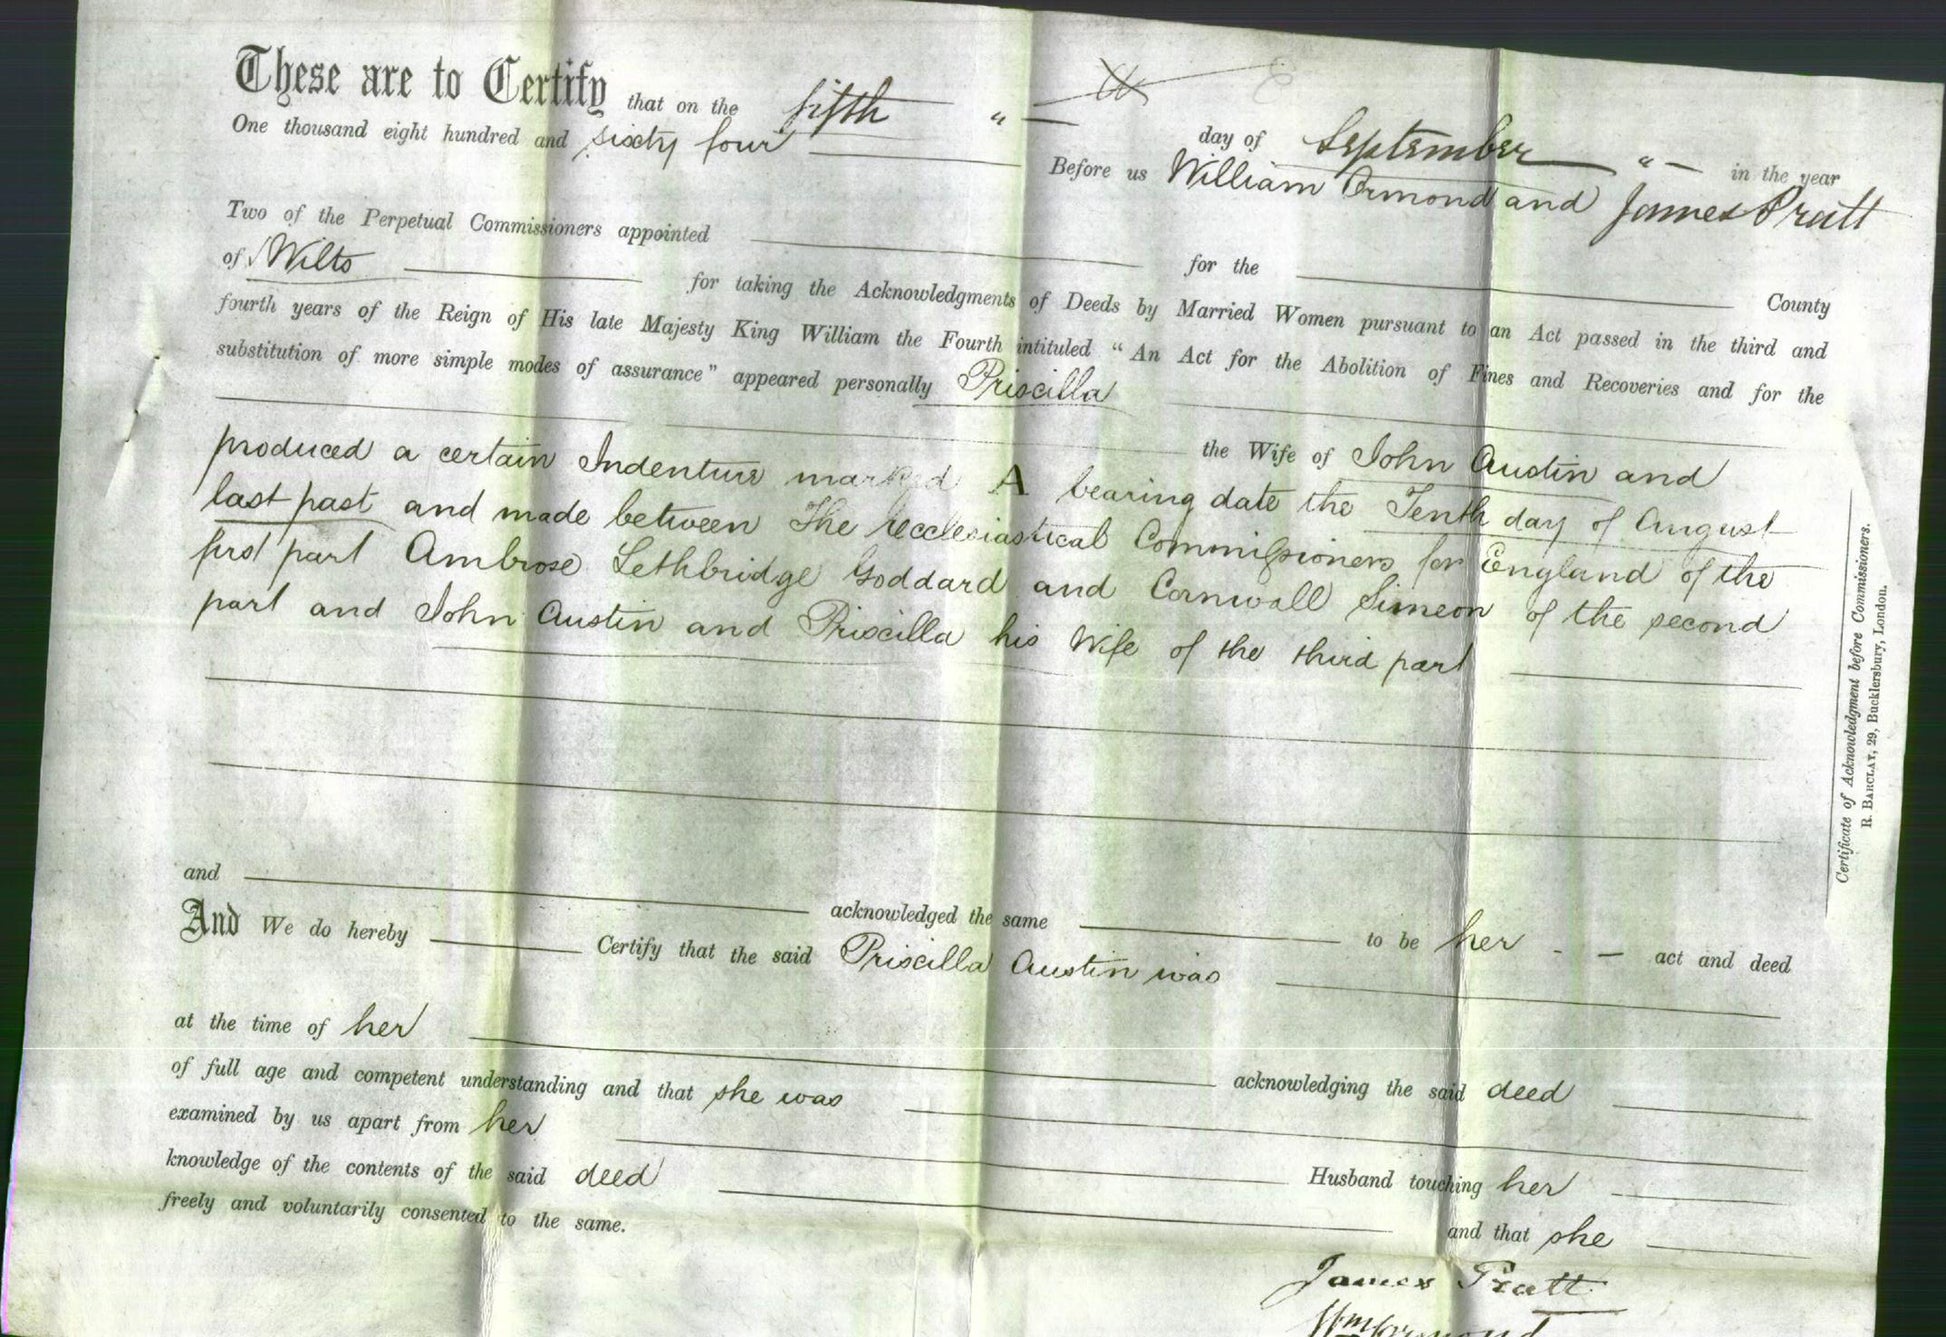 These are to Certify that on the fifth " — day of September " — in the year
One thousand eight hundred and sixty four Before us William Ormond and James Pratt
Two of the Perpetual Commissioners appointed for the County
of Wilts for taking the Acknowledgments of Deeds by Married Women pursuant to an Act passed in the third and
fourth years of the Reign of His late Majesty King William the Fourth intituled "An Act for the Abolition of Fines and Recoveries and for the
substitution of more simple modes of assurance" appeared personally Priscilla
the Wife of John Austin and
produced a certain Indenture marked A bearing date the Tenth day of August
last past and made between The Ecclesiastical Commissioners for England of the
first part Ambrose Lethbridge Goddard and Cornwall Simeon of the second
part and John Austin and Priscilla his Wife of the third part
and acknowledged the same to be her - — act and deed
And We do hereby Certify that the said Priscilla Austin was
at the time of her acknowledging the said deed
of full age and competent understanding and that she was
examined by us apart from her Husband touching her
knowledge of the contents of the said deed and that she
freely and voluntarily consented to the same.
James Pratt
Wm Ormond
Certificate of Acknowledgment before Commissioners.
R. BARCLAY, 29, Bucklersbury, London.